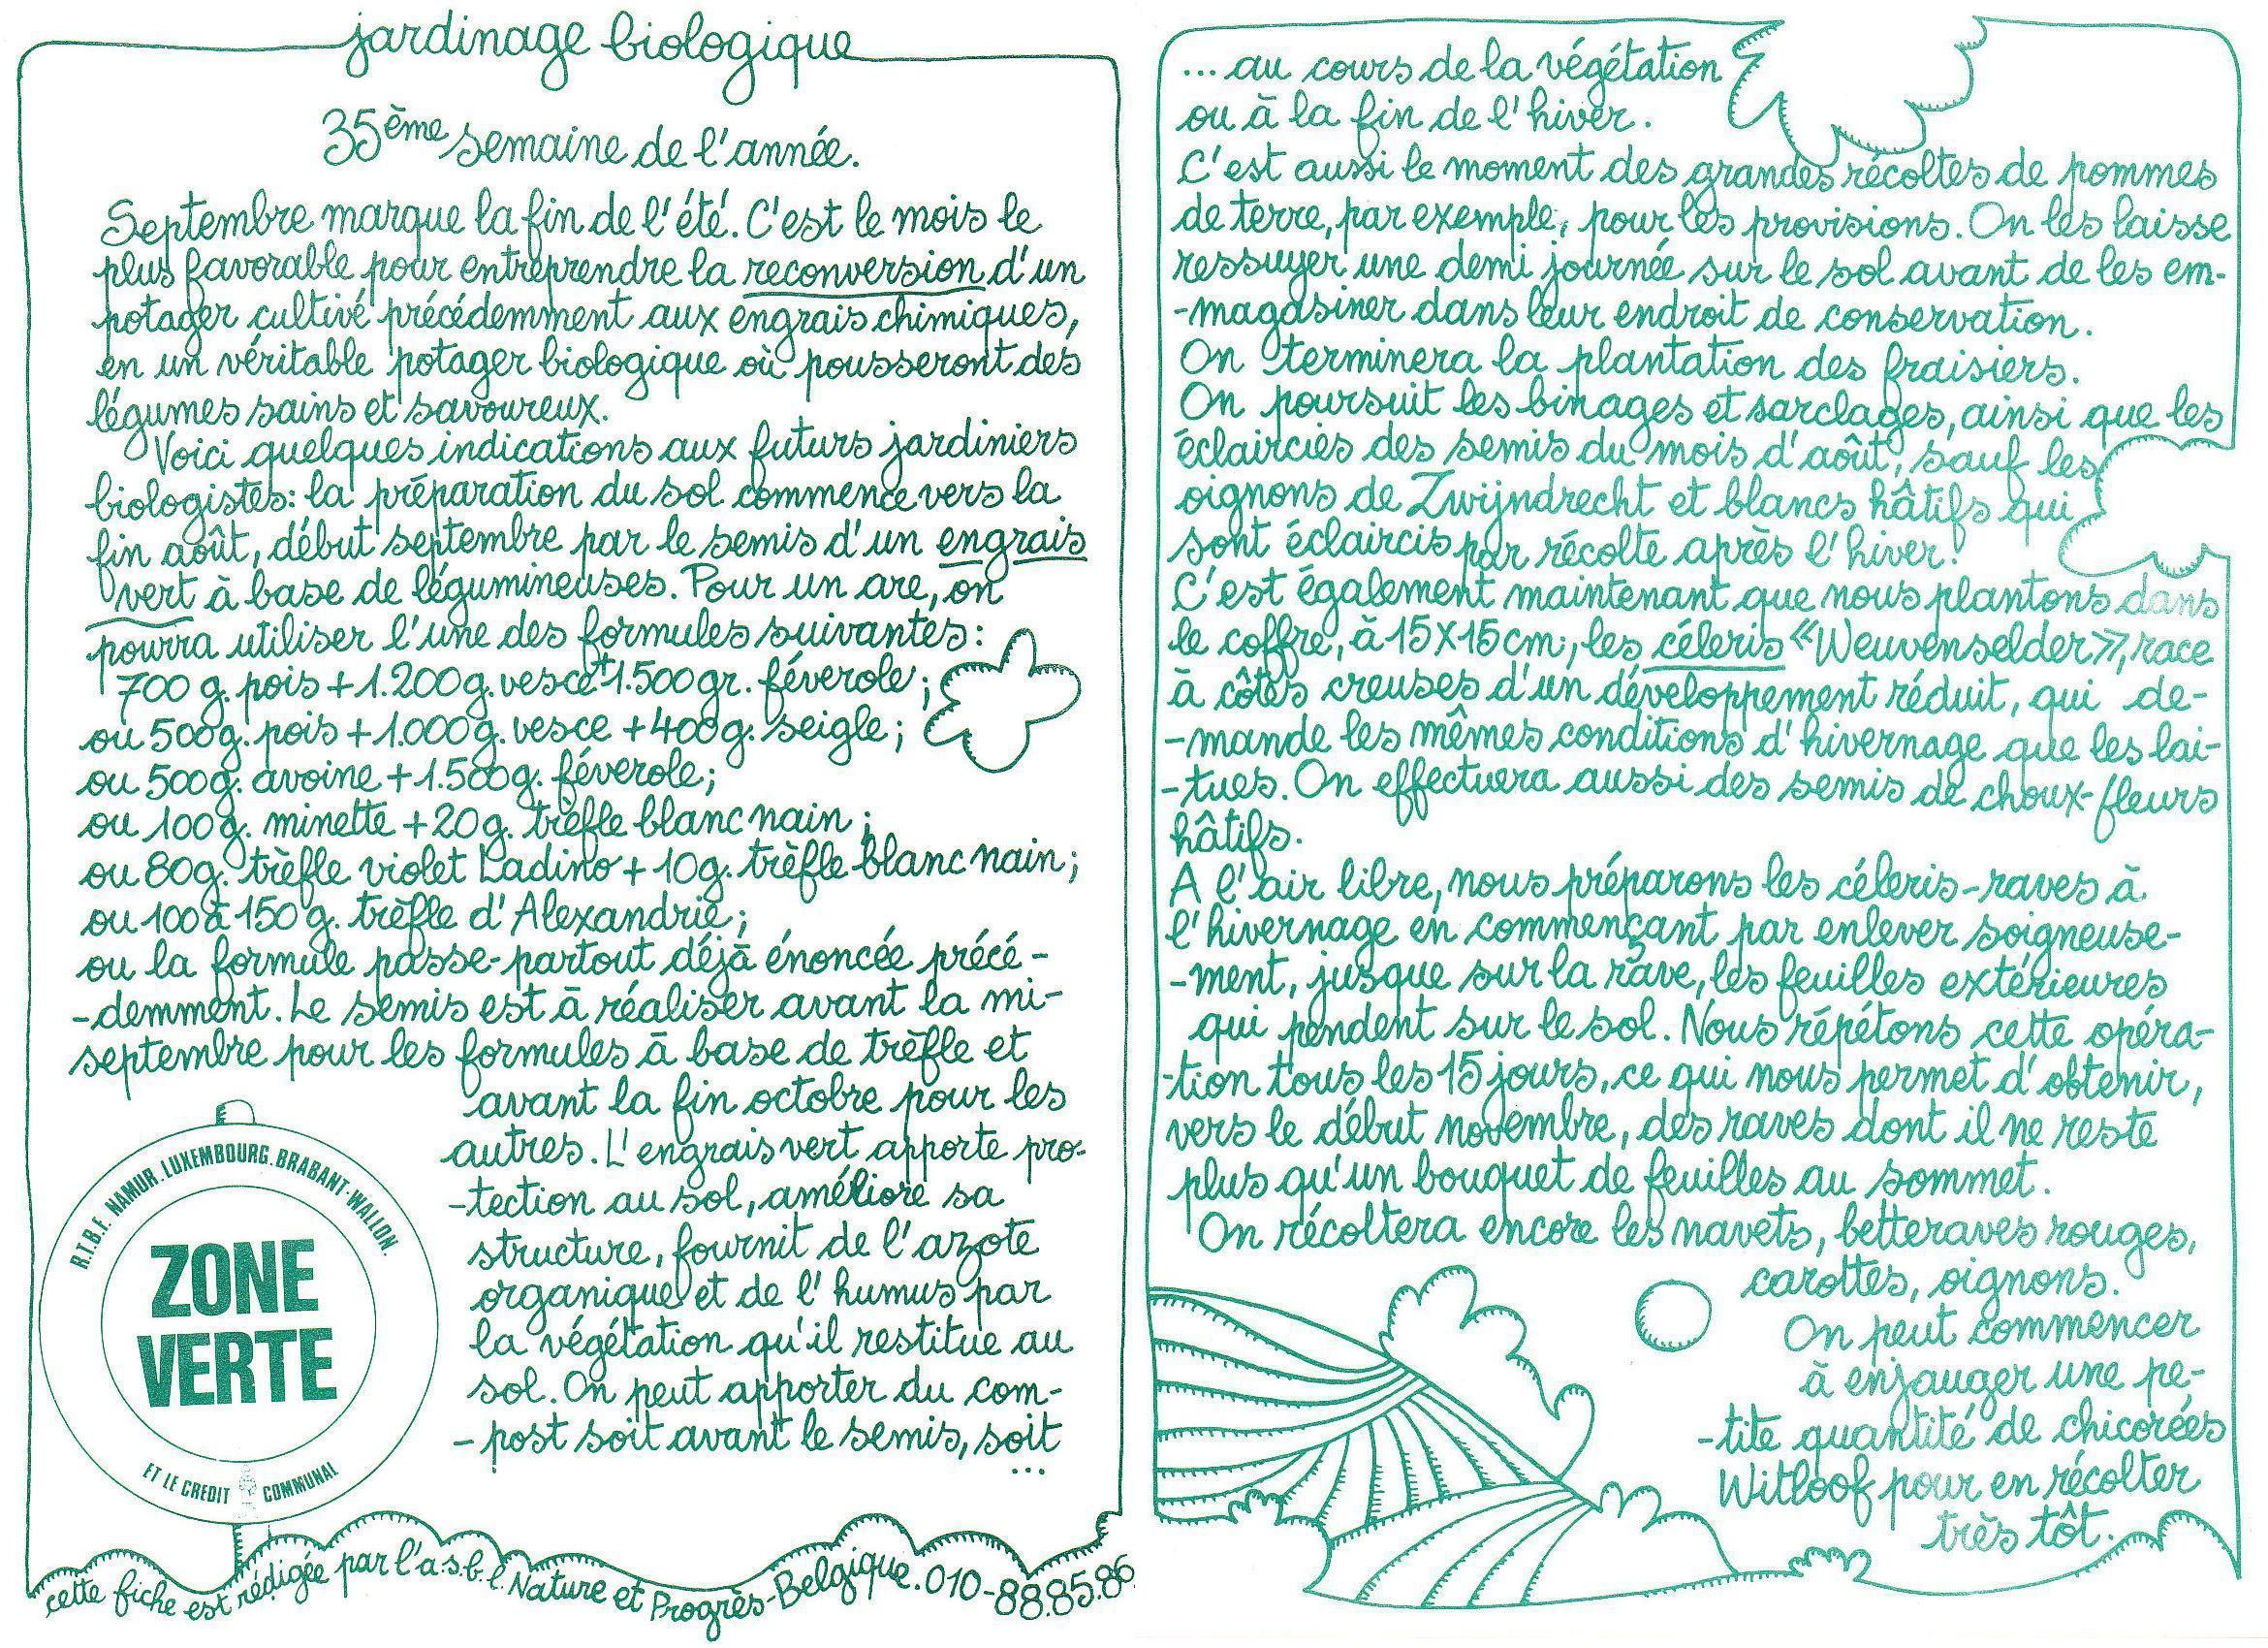 jardinage biologique
35ème semaine de l'année.
Septembre marque la fin de l'été. C'est le mois le
plus favorable pour entreprendre la reconversion d'un
potager cultivé précédemment aux engrais chimiques,
en un véritable potager biologique où pousseront des
légumes sains et savoureux.
Voici quelques indications aux futurs jardiniers
biologistes: la préparation du sol commence vers la
fin août, début septembre par le semis d'un engrais
vert à base de légumineuses. Pour un are, on
pourra utiliser l'une des formules suivantes:
700 g. pois + 1.200 g. vesce + 1.500 gr. féverole;
ou 500 g. pois + 1.000 g. vesce + 400 g. seigle;
ou 500 g. avoine + 1.500 g. féverole;
ou 100 g. minette + 20 g. trèfle blanc nain;
ou 80 g. trèfle violet Ladino + 10 g. trèfle blanc nain;
ou 100 à 150 g. trèfle d'Alexandrie;
ou la formule passe-partout déjà énoncée précé-
-demment. Le semis est à réaliser avant la mi-
septembre pour les formules à base de trèfle et
avant la fin octobre pour les
autres. L'engrais vert apporte pro-
-tection au sol, améliore sa
structure, fournit de l'azote
organique et de l'humus par
la végétation qu'il restitue au
sol. On peut apporter du com-
-post soit avant le semis, soit
...
R.T.B.F. NAMUR. LUXEMBOURG. BRABANT-WALLON.
ZONE
VERTE
ET LE CREDIT COMMUNAL
cette fiche est rédigée par l'a.s.b.l. Nature et Progrès-Belgique. 010-88.85.86
... au cours de la végétation
ou à la fin de l'hiver.
C'est aussi le moment des grandes récoltes de pommes
de terre, par exemple, pour les provisions. On les laisse
ressuyer une demi journée sur le sol avant de les em-
-magasiner dans leur endroit de conservation.
On terminera la plantation des fraisiers.
On poursuit les binages et sarclages, ainsi que les
éclaircies des semis du mois d'août, sauf les
oignons de Zwijndrecht et blancs hâtifs qui
sont éclaircis par récolte après l'hiver.
C'est également maintenant que nous plantons dans
le coffre, à 15X15 cm, les céleris «Weuvenselder», race
à côtes creuses d'un développement réduit, qui de-
-mande les mêmes conditions d'hivernage que les lai-
-tues. On effectuera aussi des semis de choux-fleurs
hâtifs.
A l'air libre, nous préparons les céleris-raves à
l'hivernage en commençant par enlever soigneuse-
-ment, jusque sur la rave, les feuilles extérieures
qui pendent sur le sol. Nous répétons cette opéra-
-tion tous les 15 jours, ce qui nous permet d'obtenir,
vers le début novembre, des raves dont il ne reste
plus qu'un bouquet de feuilles au sommet.
On récoltera encore les navets, betteraves rouges,
carottes, oignons.
On peut commencer
à enjauger une pe-
-tite quantité de chicorées
Witloof pour en récolter
très tôt.